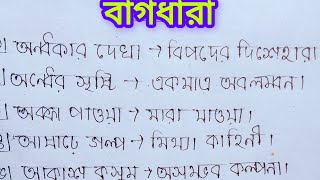 বাগধারা
১) অন্ধকার দেখা → বিপদের দিশেহারা
অন্ধের যষ্টি → একমাত্র অবলম্বন।
অক্কা পাওয়া → মারা যাওয়া।
আষাঢ়ে গল্প → মিথ্যা কাহিনী।
আকাশ কুসুম → অসম্ভব কল্পনা।